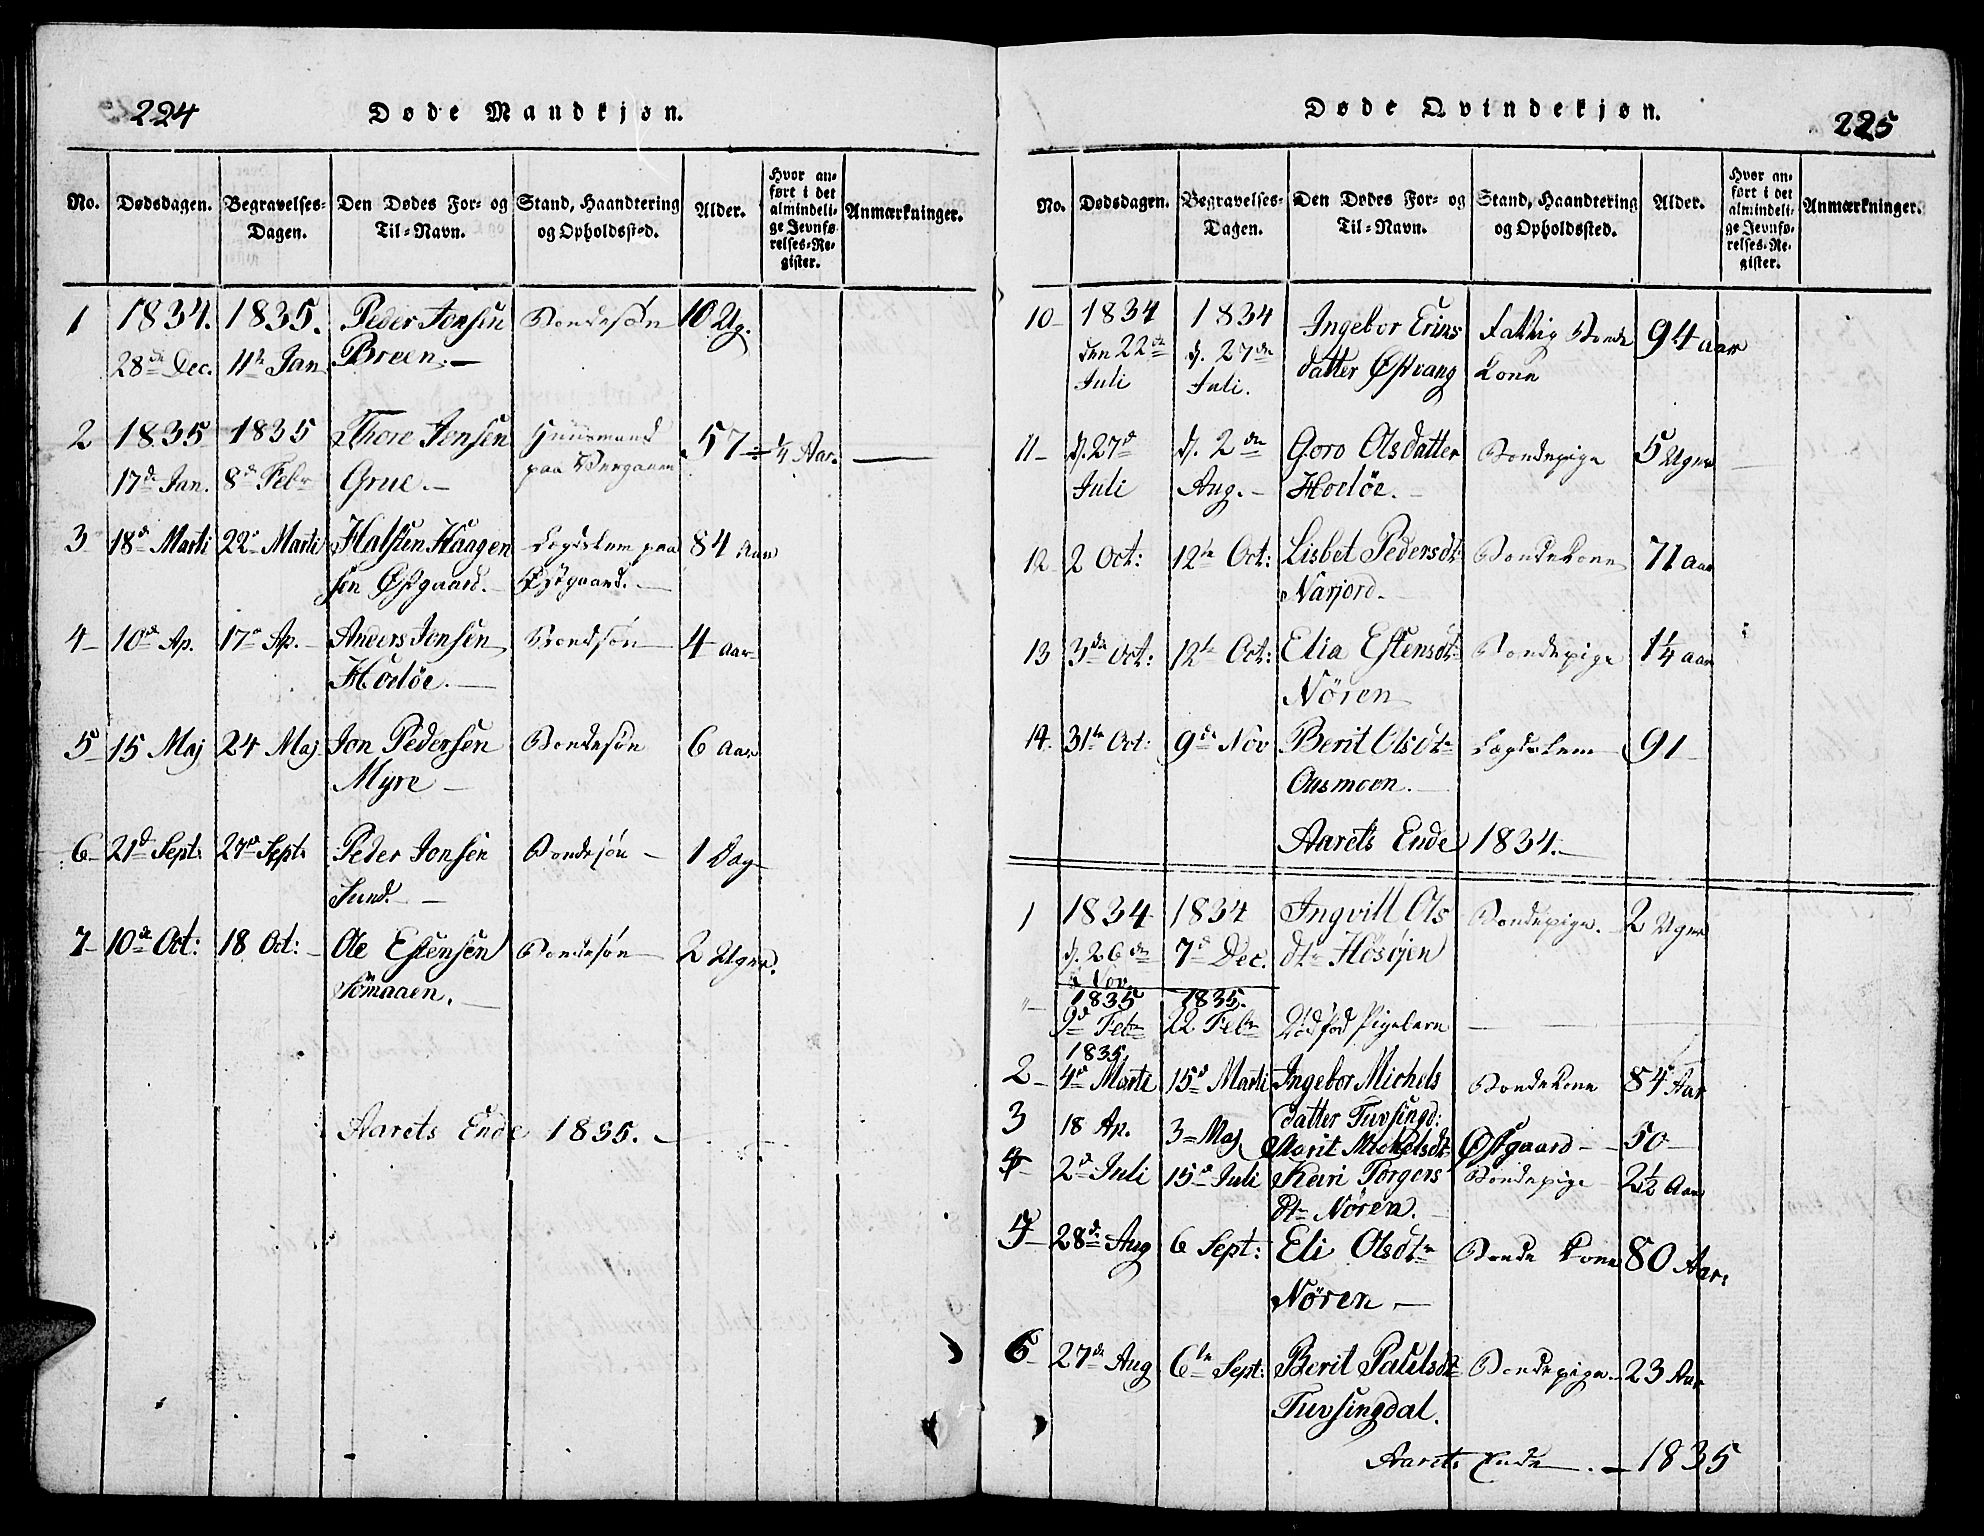 224
Døde Mandkjøn.
No. Dødsdagen. Begravelses-Dagen. Den Dødes For- og Til-Navn. Stand, Haandtering og Opholdssted. Alder. Hvor anført i det almindelige Jevnførelses-Register. Anmærkninger.
1 1834. 1835. Peder Jonsen Bondesøn 10 Ug.
28de Dec. 11te Jan Breen.
2 1835 1835 Thore Jonsen Huusmand 57 1/4 Aar.
17de Jan. 8de Febr Grue. paa
3 18de Marti 22de Marti Halsten Haagen Lægdslem paa 84 Aar
sen Østgaard. Østgaard.
4 10de Ap. 17de Ap. Anders Jonsen Bondesøn 4 Aar
Hodløe.
5 15 Maj 24 Maj Jon Pedersen Bondesøn 6 Aar
Myre
6 21de Sept: 27de Sept: Peder Jonsen Bondesøn 1 Dag
Sund.
7 10de Oct: 18 Oct: Ole Estensen Bondesøn 2 Uger.
Sømaaen.
Aarets Ende 1835.
225
Døde Qvindekjøn.
No. Dødsdagen. Begravelses-Dagen. Den Dødes For- og Til-Navn. Stand, Haandtering og Opholdssted. Alder. Hvor anført i det almindelige Jevnførelses-Register. Anmærkninger.
10 1834 1834 Ingebor Erics Fattig Bonde 94 Aar
den 22de d. 27de datter Østvang Kone
Juli Juli.
11 d. 27de d. 2den Goro Olsdatter Bondepige 5 Uger
Juli Aug. Hodløe.
12 2 Oct: 12te Oct: Lisbet Pedersdtr Bondekone 71 Aar
Narjord.
13 3de Oct: 12te Oct: Elia Estensdtr Bondepige 1 1/4 Aar
Nøren
14. 31te Oct: 9de Nov Berit Olsdtr Lægdslem 91
Aasmoen.
Aarets Ende 1834.
1 1834 1834 Ingvill Ols Bondepige. 2 Uger
d. 26de 7de Dec. dtr Høsøjen
Nov.
1835 1835.
9de Febr 22 Febr Dødfød Pigebarn
1835
2 4de Marti 15de Marti Ingebor Michels Bondekone 84 Aar
datter Tuvsingd:
3 18 Ap. 3 Maj Marit Mickelsdtr Østgaard 50
4 2de Juli 15de Juli Kari Torgers Bondepige 2 1/2 Aar
dtr Nøren.
5 28de Aug 6 Sept: Eli Olsdtr Bonde Kone 80 Aar.
Nøren
6 27de Aug 6te Sept: Berit Paulsdtr Bondepige 23 Aar
Tuvsingdal.
Aarets Ende. 1835